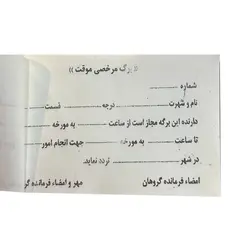 « برگ مرخصی موقت »
شماره
نام و شهرت درجه قسمت
دارنده این برگه مجاز است از ساعت به مورخه
تا ساعت به مورخه جهت انجام امور
در شهر تردد نماید.
امضاء فرمانده گروهان مهر و امضاء فرمانده